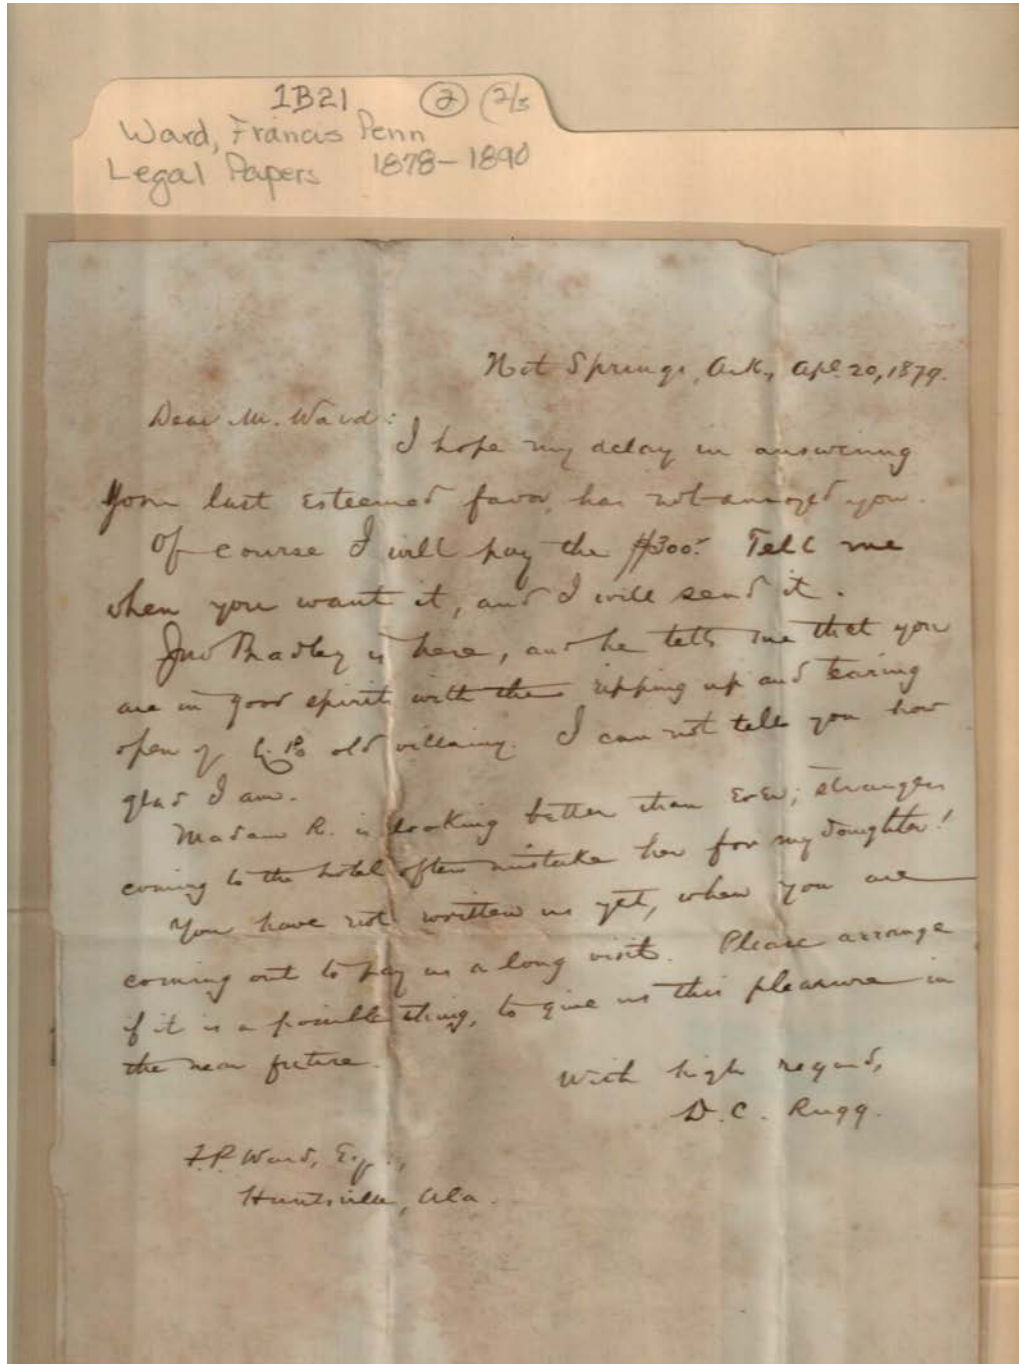 1B21 2 (2/3
Ward, Francis Penn
Legal Papers 1878-1890
Hot Springs, Ark., Apl. 20, 1879.
Dear Mr. Ward:
I hope my delay in answering
your last esteemed favor, has not annoyed you.
Of course I will pay the $300.- Tell me
when you want it, and I will send it.
Jno Bradley is here, and he tells me that you
are in good spirits with the ripping up and tearing
open of old villainy. I can not tell you how
glad I am.
Madam R. is looking better than ever; strangers
coming to the hotel often mistake her for my daughter!
You have not written us yet, when you are
coming out to pay us a long visit. Please arrange
if it is a possible thing, to give us this pleasure in
the near future.
With high regard,
D. C. Rugg.
F. P. Ward, Esq.,
Huntsville, Ala.